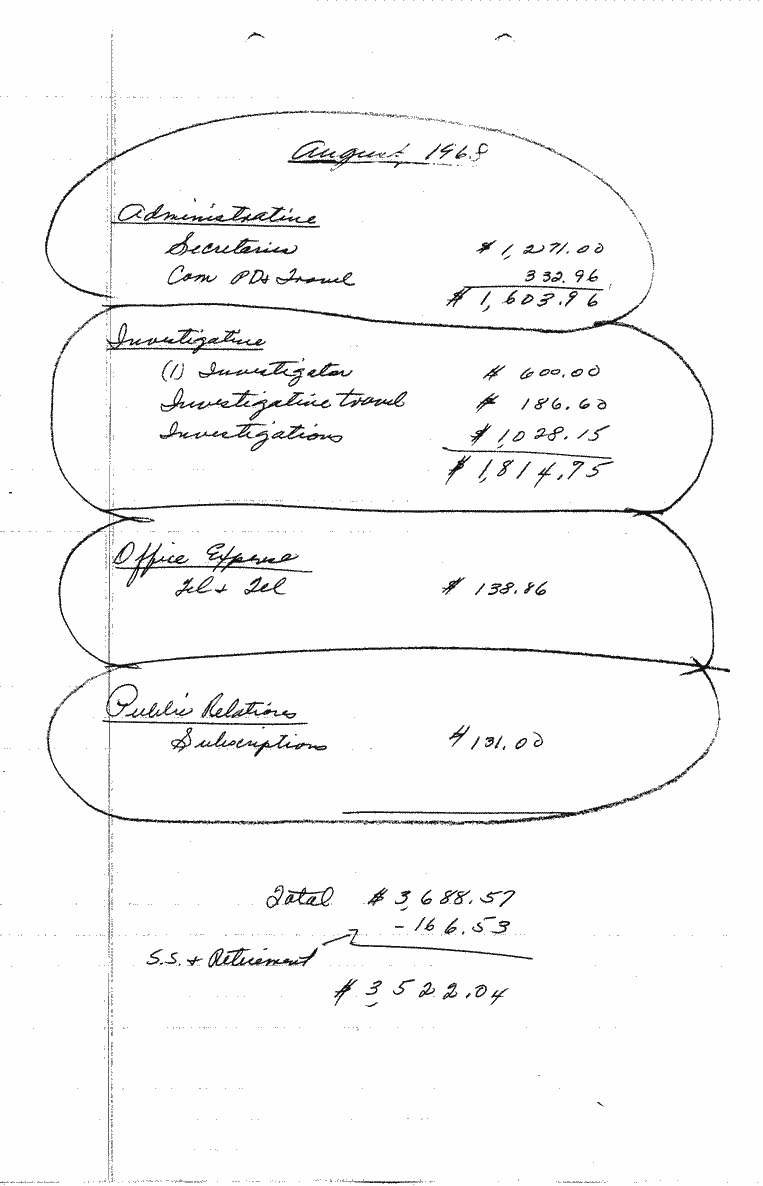 August, 1968
Administrative
Secretaries $ 1,271.00
Com PD& Travel 332.96
$ 1,603.96
Investigative
(1) Investigator $ 600.00
Investigative travel $ 186.60
Investigations $ 1,028.15
$ 1,814.75
Office Expense
Tel & Tel $ 138.86
Public Relations
Subscriptions $ 131.00
Total $ 3,688.57
- 166.53
S.S. + Retirement
$ 3,522.04